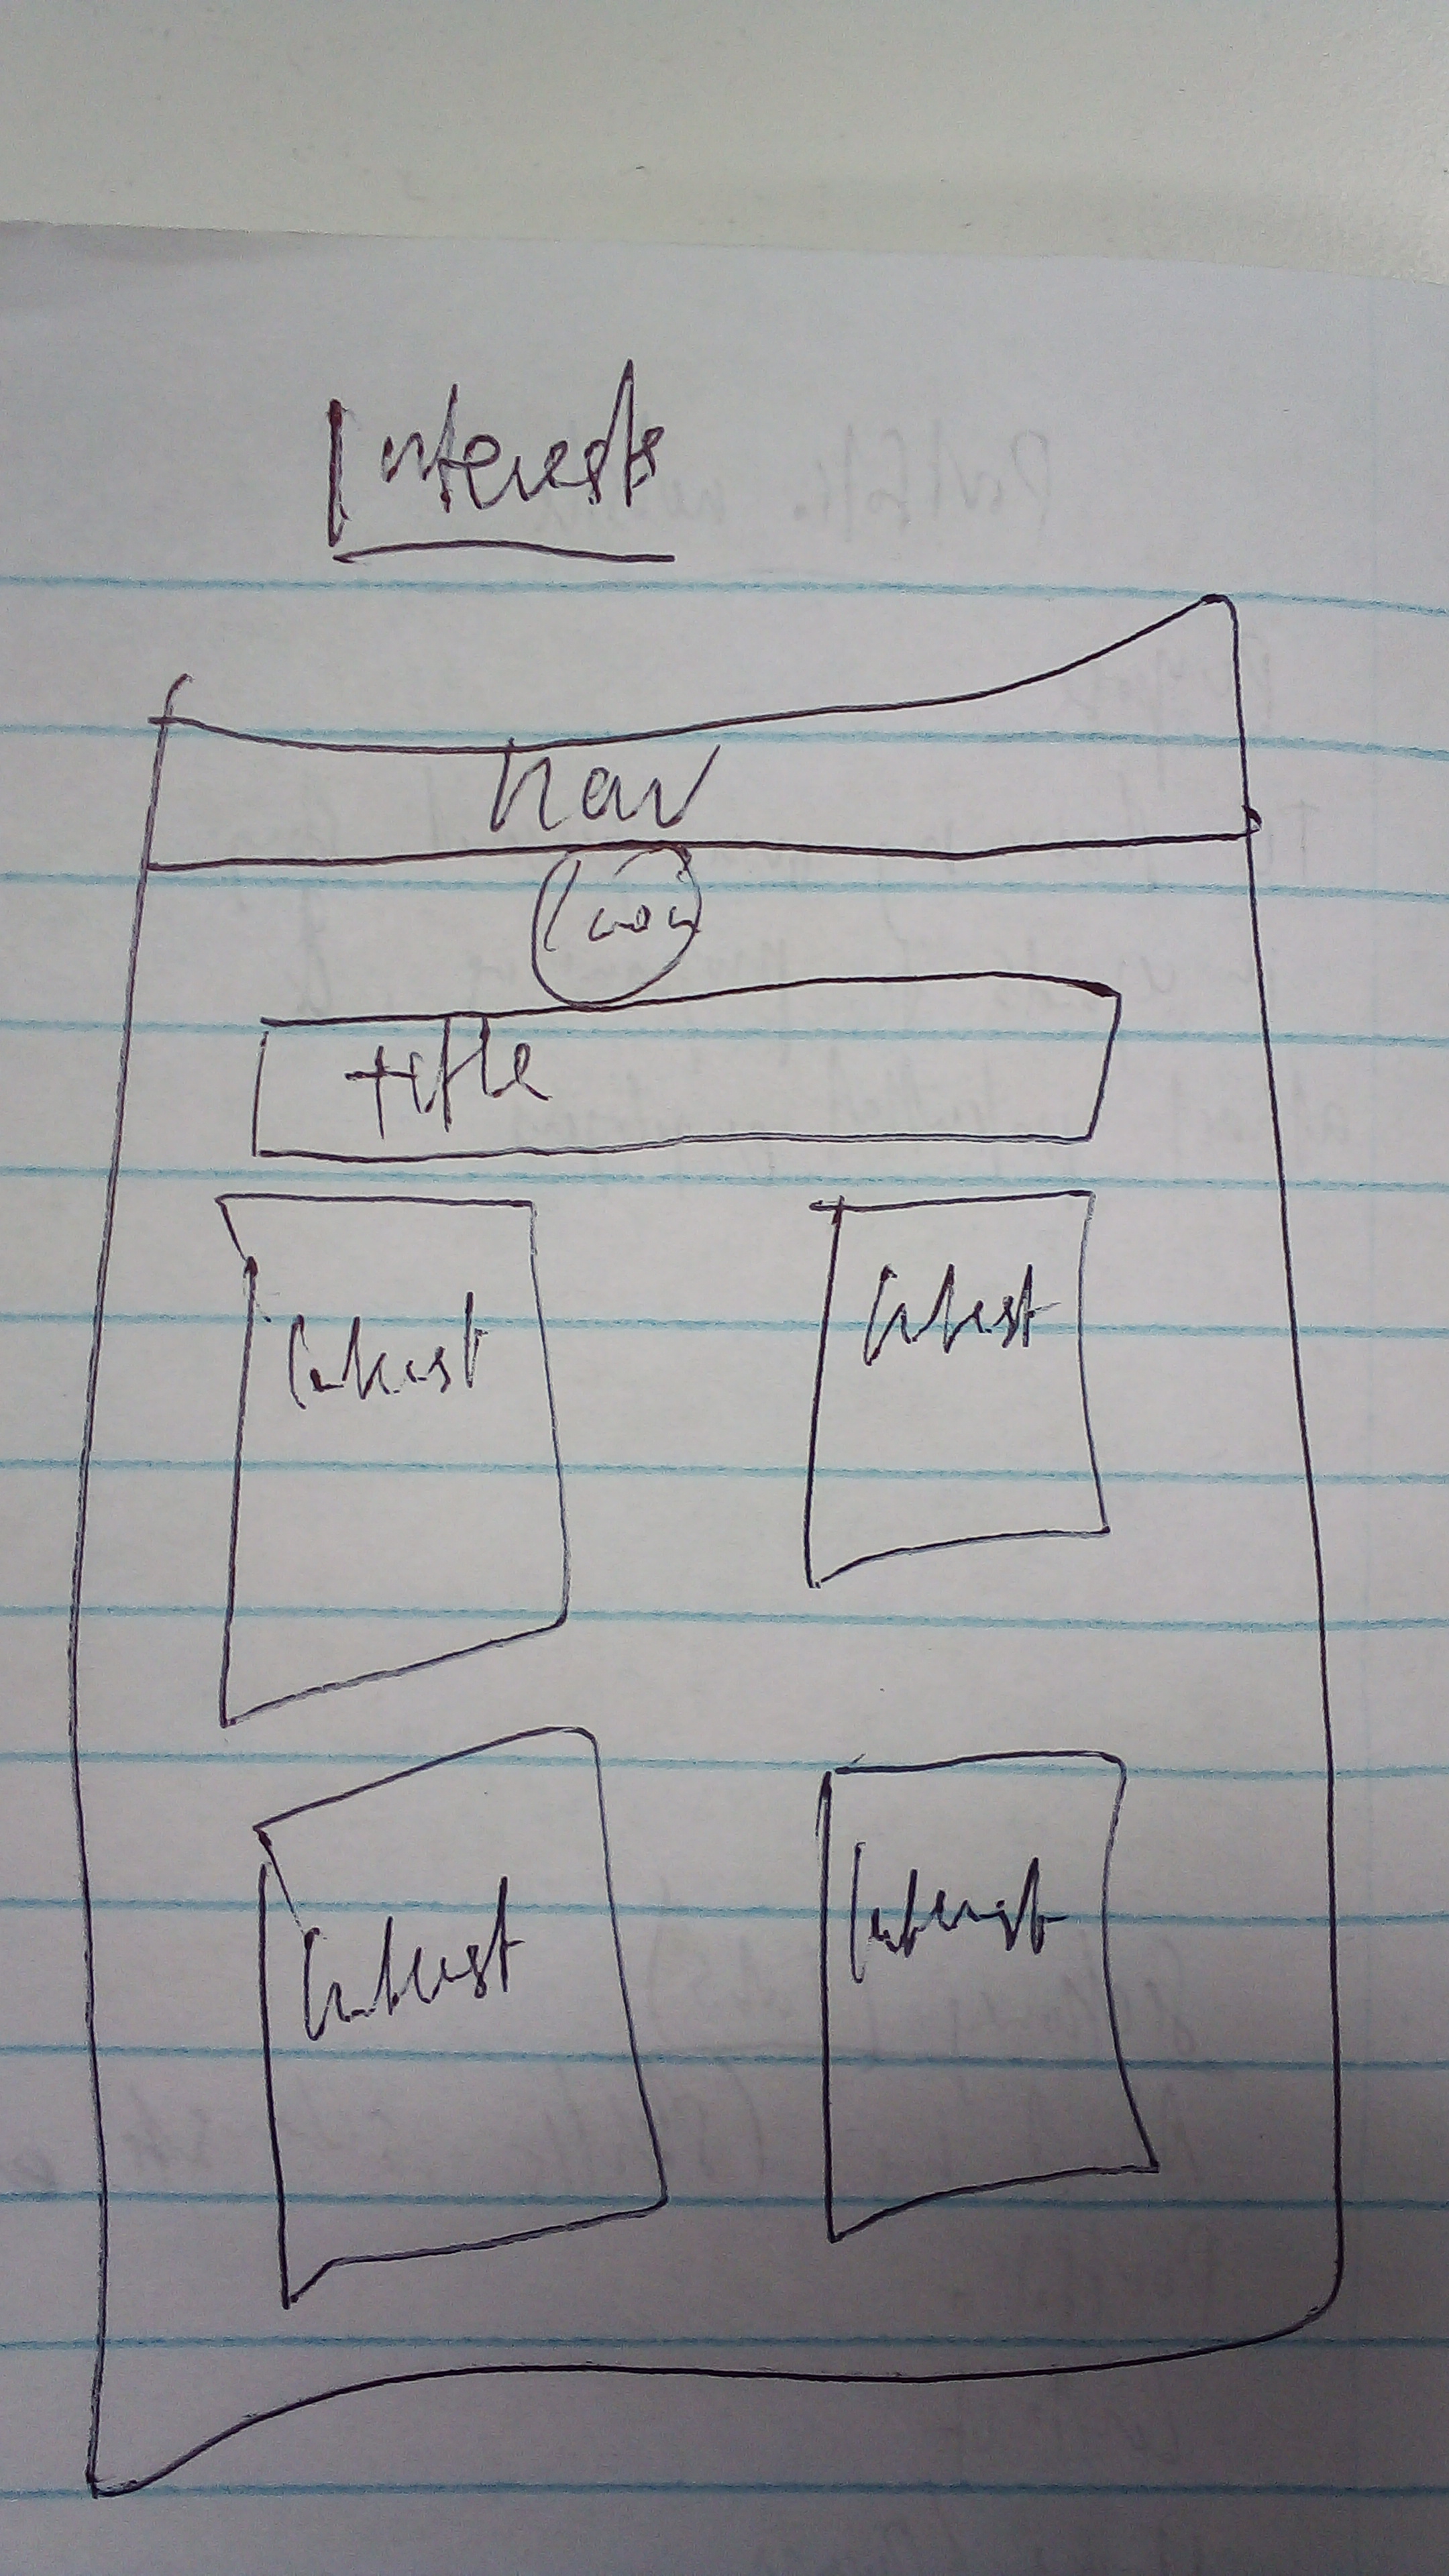 Interests
nav
Icon
title
Interest Interest
Interest Interest